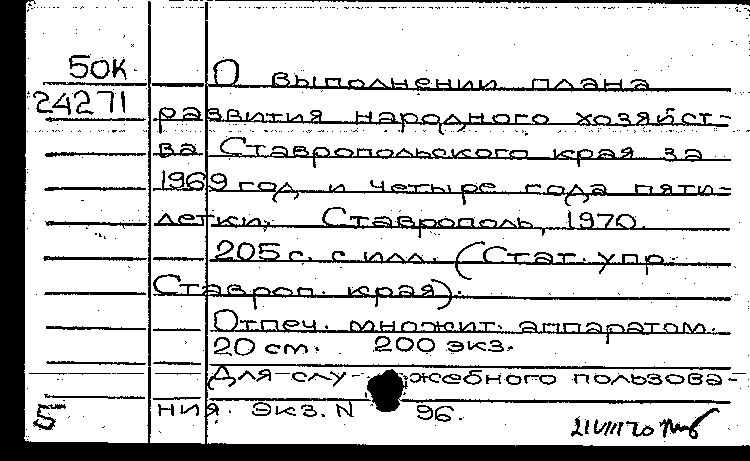 50К О выполнении плана
24271 развития народного хозяйст-
ва Ставропольского края за
1969 год и четыре года пяти-
летки. Ставрополь, 1970.
205 с. с илл. (Стат. упр.
Ставроп. края).
Отпеч. множит. аппаратом.
20 см. 200 экз.
Для слу- жебного пользова-
ния. Экз. N 96.
Б
21 VIII 70